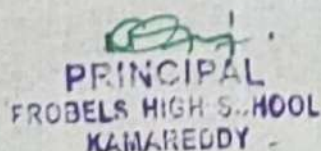 PRINCIPAL
FROBELS HIGH S..HOOL
KAMAREDDY